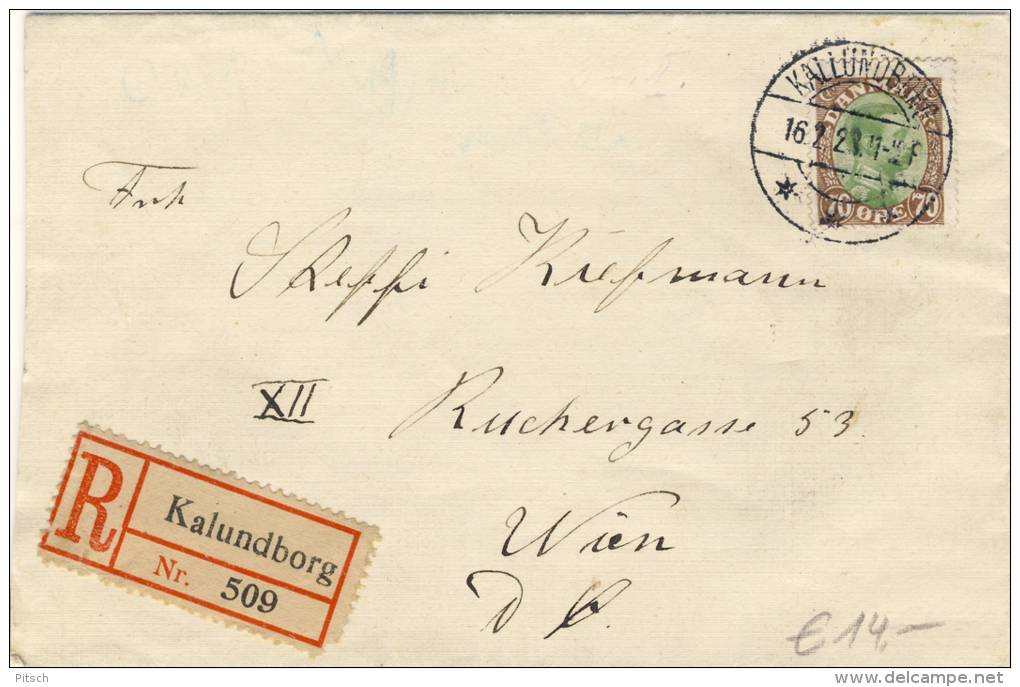 KALLUNDBORG
16.2.28.11-12F
DANMARK
70 ØRE 70
Frk
Steffi Kiefmann
XII Ruchergasse 53.
Wien
R Kalundborg
Nr. 509
D. C.
€ 14,-
Pitsch
delcampe.net